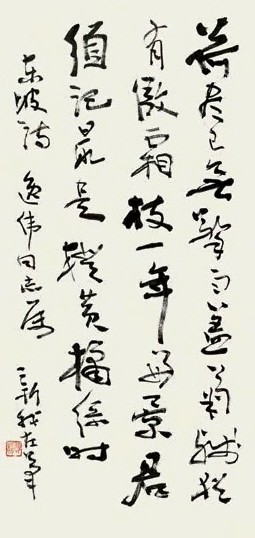 荷尽已无擎雨盖菊残犹
有傲霜枝一年好景君
须记最是橙黄橘绿时
东坡诗 逸伟同志属
新我左笔